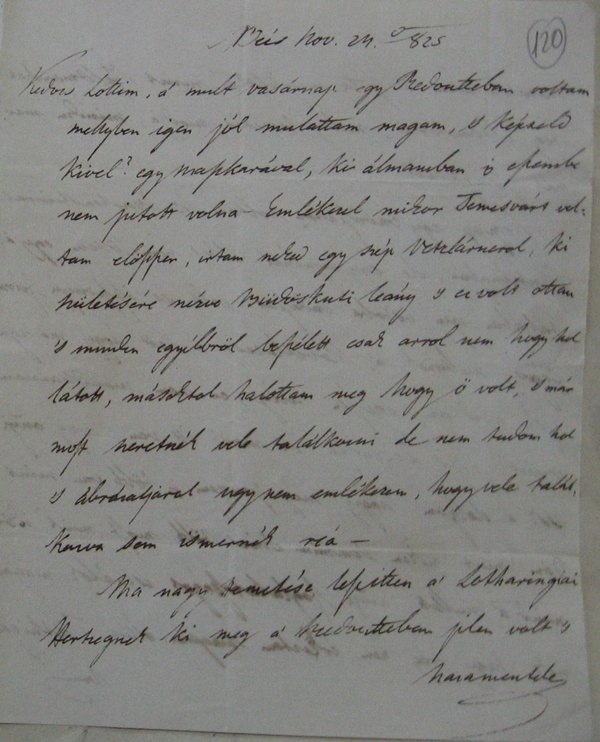 Bécs Nov. 24. 825
120
Kedves Lottim, á mult vasárnap egy Redoutteban voltam
mellyben igen jól mulattam magam, 's képzeld
kivel? egy maskarával, ki álmamban is eszembe
nem jutott volna – Emlékezel mikor Temesvárt vol-
tam előszer, irtam neked egy szép Veszlárnerol, ki
születésére nézve Büdöskuti leány 's ez volt ottan
's minden egyébről beszélett csak arrol nem hogy hol
látott, másoktol halottam meg hogy ő volt, 's már
most szeretnék vele találkozni de nem tudom hol
's ábrázatjárol ugy nem emlékezem, hogy vele talál-
kozva sem ismernék reá –
Ma nagy temetése leszen á Lotharingiai
Hertzegnek ki meg á Redoutteban jelen volt 's
hazamentele